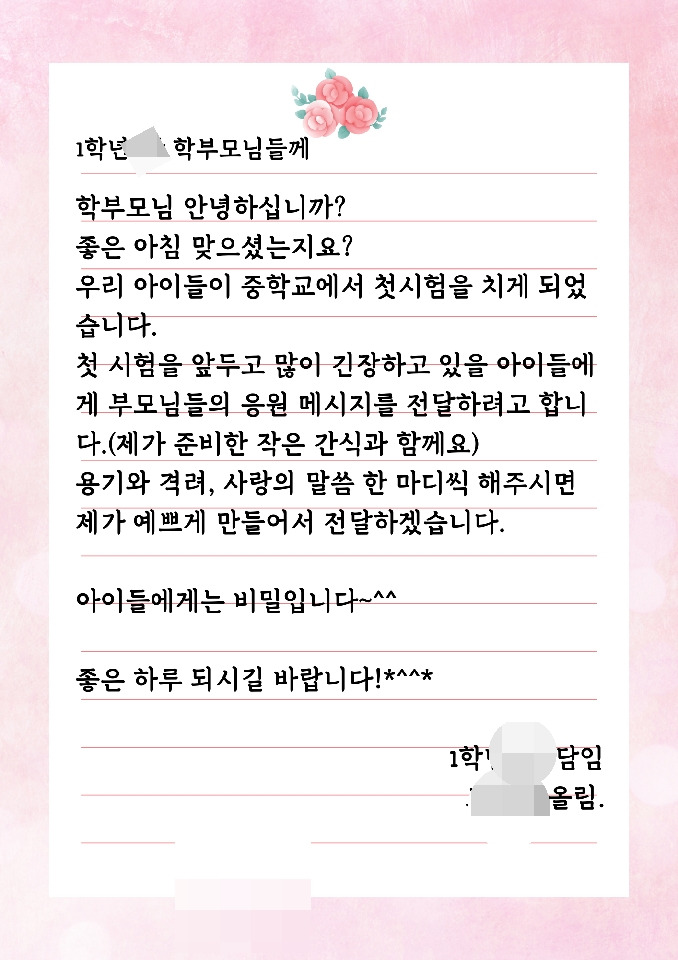 1학년 학부모님들께
학부모님 안녕하십니까?
좋은 아침 맞으셨는지요?
우리 아이들이 중학교에서 첫시험을 치게 되었
습니다.
첫 시험을 앞두고 많이 긴장하고 있을 아이들에
게 부모님들의 응원 메시지를 전달하려고 합니
다.(제가 준비한 작은 간식과 함께요)
용기와 격려, 사랑의 말씀 한 마디씩 해주시면
제가 예쁘게 만들어서 전달하겠습니다.
아이들에게는 비밀입니다~^^
좋은 하루 되시길 바랍니다!*^^*
1학년 담임
올림.